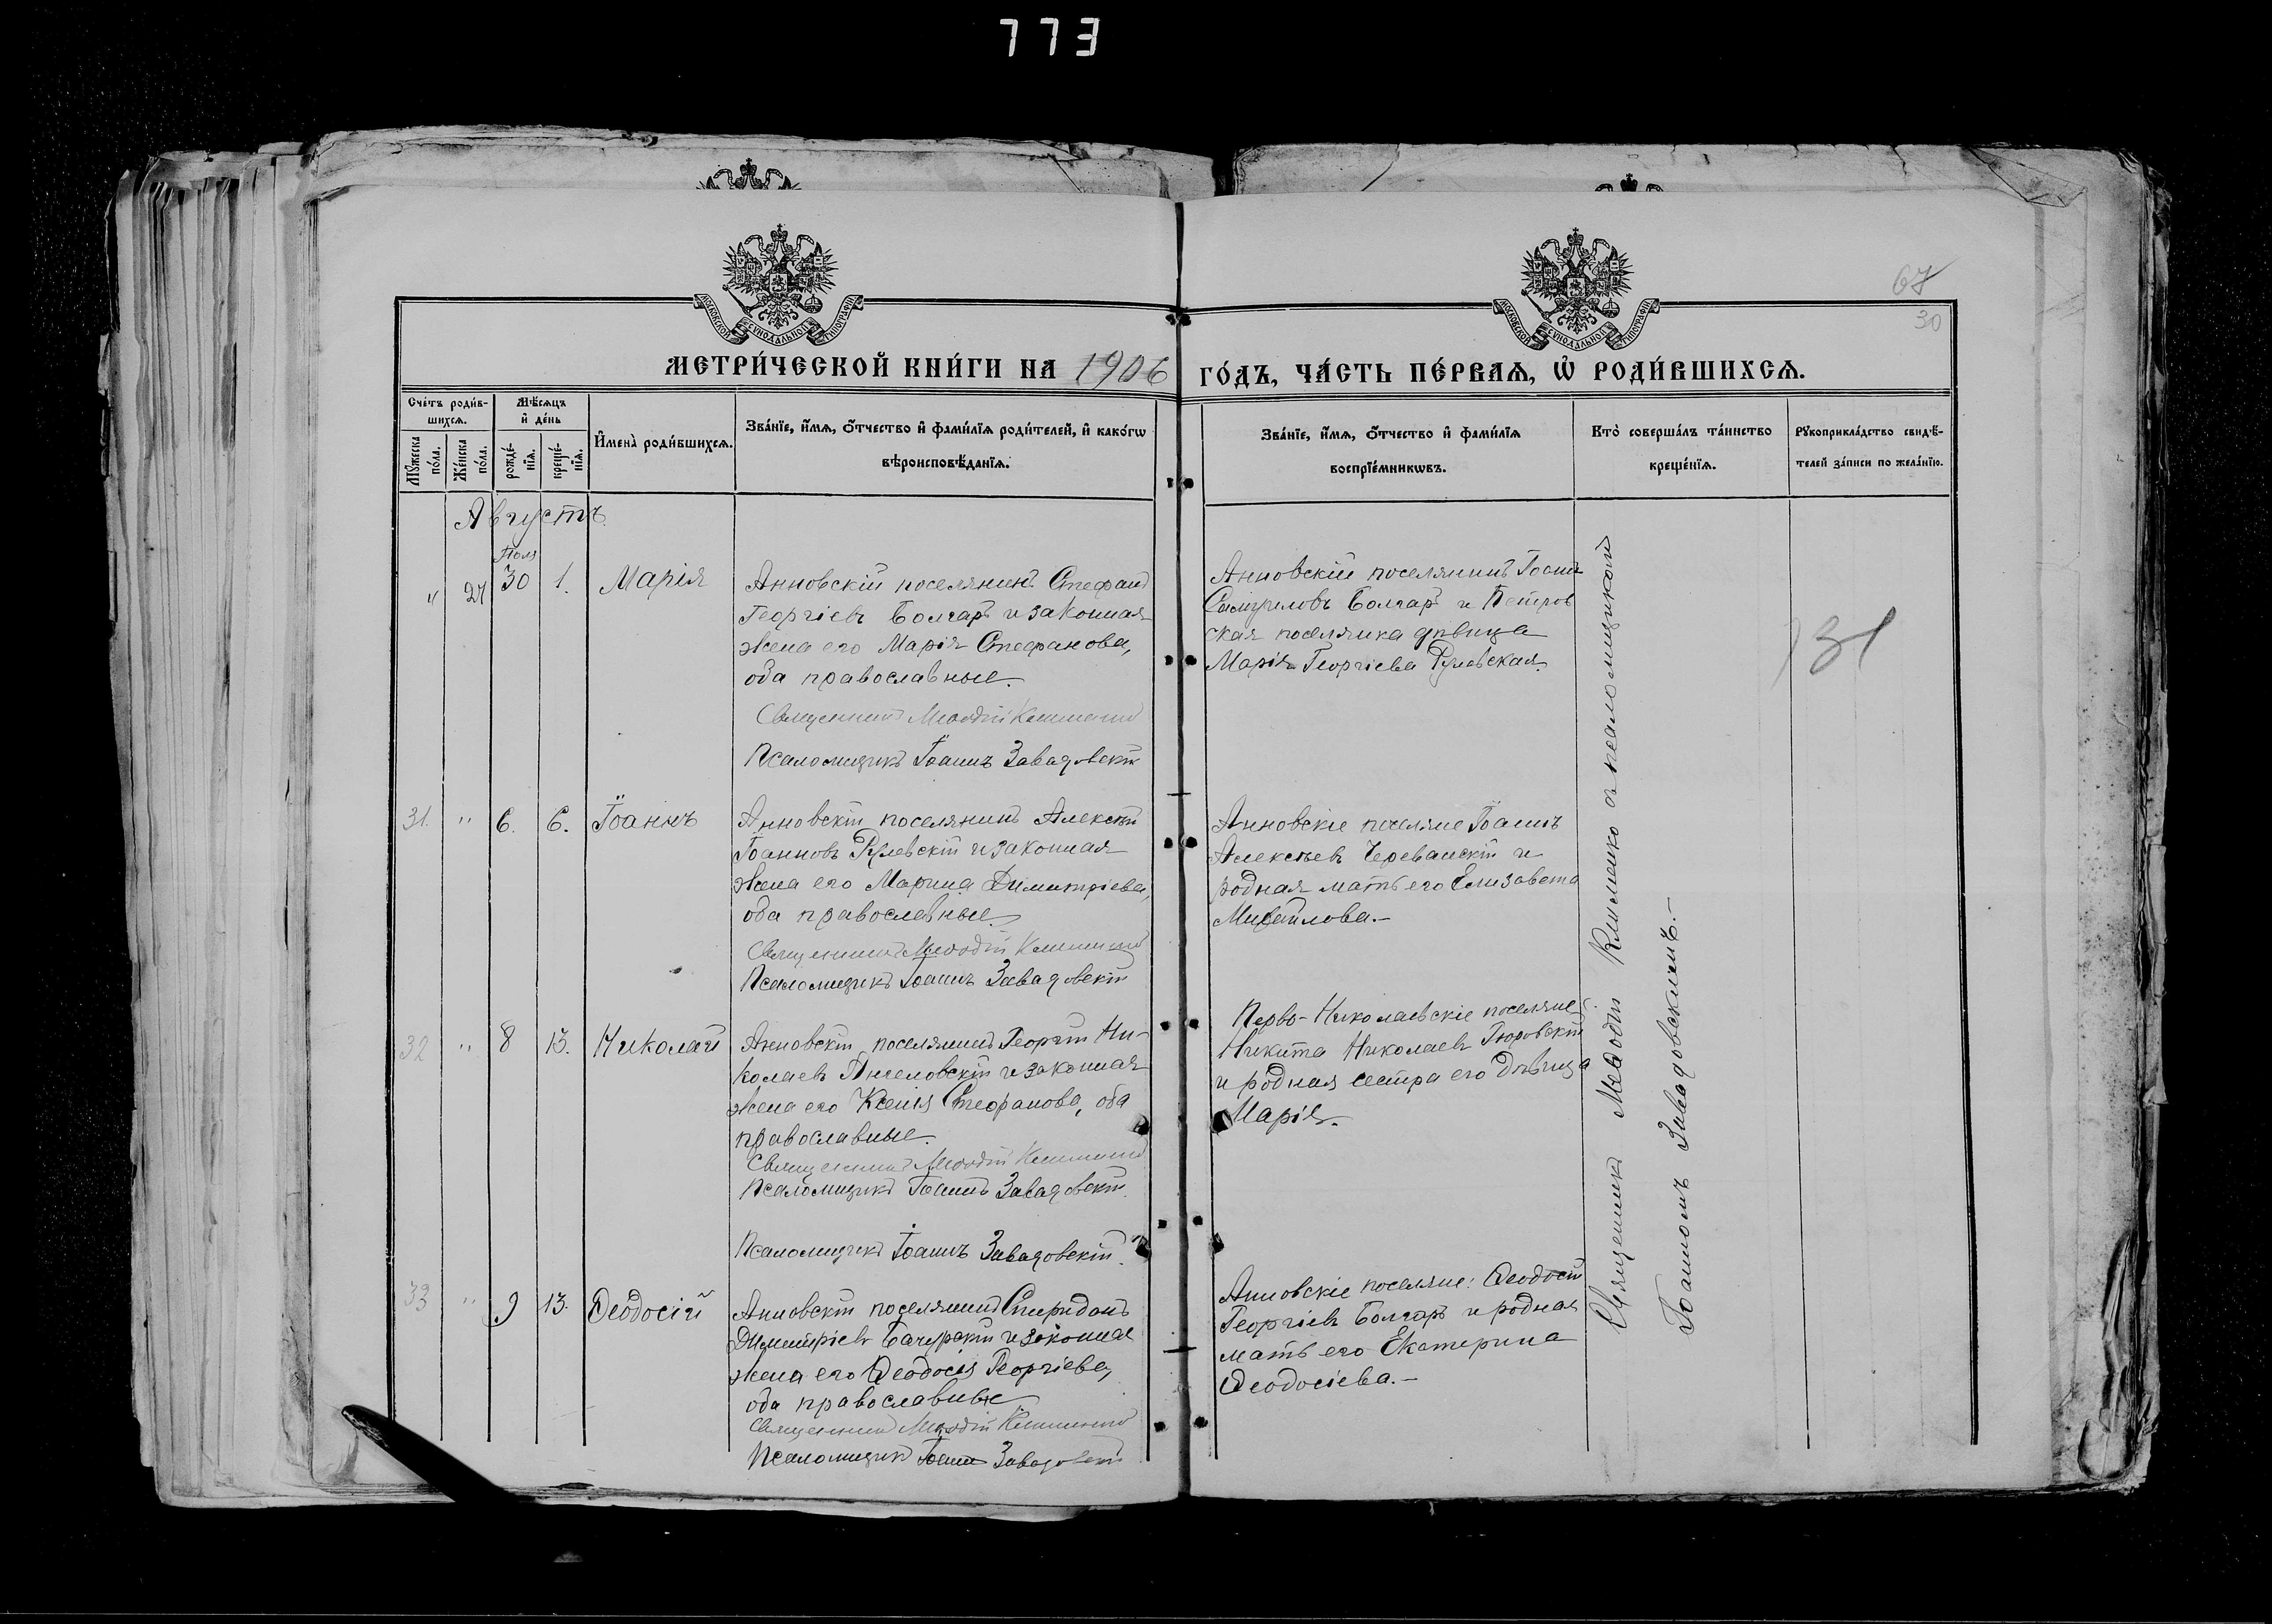 773
67
30
МОСКОВСКОЙ СѴНОДАЛЬНОЙ ТИПОГРАФІИ
МОСКОВСКОЙ СѴНОДАЛЬНОЙ ТИПОГРАФІИ
МЕТРИ́ЧЕСКОЙ КНИ́ГИ НА 1906 ГО́ДЪ, ЧА́СТЬ ПЕ́РВАѦ, Ѡ҆ РОДИ́ВШИХСѦ.
Сче́тъ роди́в-
шихсѧ.
Мꙋ́жеска по́ла.
Же́нска по́ла.
Мѣ́сѧцъ
и҆ де́нь
рожде́-
нїѧ.
креще́-
нїѧ.
И҆мена̀ роди́вшихсѧ.
Зва́нїе, и҆́мѧ, ѻ҆́тчество и҆ фами́лїѧ роди́телей, и҆ како́гѡ
вѣроисповѣ́данїѧ.
Зва́нїе, и҆́мѧ, ѻ҆́тчество и҆ фами́лїѧ
воспрїе́мникѡвъ.
Кто̀ соверша́лъ та́инство
креще́нїѧ.
Рꙋкоприкла́дство свидѣ́-
телей за́писи по жела́нїю.
Августъ
Іюля
" 27 30 1. Марія
Анновскій поселянинъ Стефанъ
Георгіевъ Болгаръ и законная
жена его Марія Стефанова,
оба православные.
Священникъ Меѳодій Клименко
Псаломщикъ Іоаннъ Завадовскій
Анновскій поселянинъ Іоаннъ
Самуиловъ Болгаръ и Петров
ская поселянка дѣвица
Марія Георгіева Рулевская.
131
31. " 6. 6. Іоаннъ
Анновскій поселянинъ Алексѣй
Іоанновъ Рулевскій и законная
жена его Марина Димитріева,
оба православные
Священникъ Меѳодій Клименко
Псаломщикъ Іоаннъ Завадовскій
Анновскіе поселяне Іоаннъ
Алексѣевъ Череванскій и
родная мать его Елизавета
Михайлова.-
32 " 8 13. Николай
Анновскій поселянинъ Георгій Ни-
колаевъ Ангеловскій и законная
жена его Ксенія Стефанова, оба
православные.
Священникъ Меѳодій Клименко
Псаломщикъ Іоаннъ Завадовскій.
Псаломщикъ Іоаннъ Завадовскій.
Перво-Николаевскіе поселяне
Никита Николаевъ Гюровскій
и родная сестра его дѣвица
Марія.
33 " 9 13. Ѳеодосій
Анновскій поселянинъ Спиридонъ
Димитріевъ Бачурскій и законная
жена его Ѳеодосія Георгіева,
оба православные
Священникъ Меѳодій Клименко
Псаломщикъ Іоаннъ Завадовскій
Анновскіе поселяне: Ѳеодосій
Георгіевъ Болгаръ и родная
мать его Екатерина
Ѳеодосіева.-
Священникъ Меѳодій Клименко съ псаломщикомъ
Іоанномъ Завадовскимъ.-